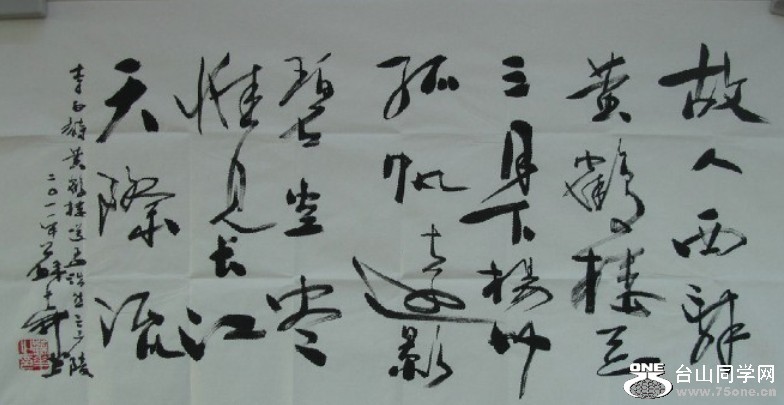 故人西辞
黄鶴楼
三月下揚州
孤帆遠影
碧空尽
惟見长江
天際流
李白詩黄鶴楼送孟浩然之广陵
二〇一一年
ONE
台山同学网
www.75one.cn